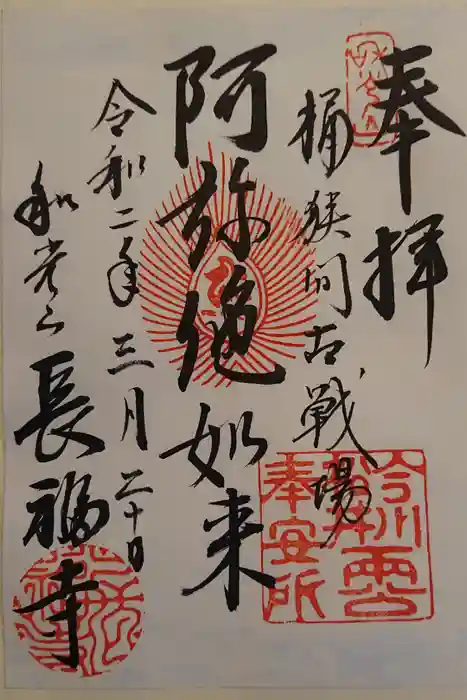 奉拝
桶狭間古戦場
阿弥陀如来
令和二年三月二十日
和光山
長福寺
今川松井霊
奉安所